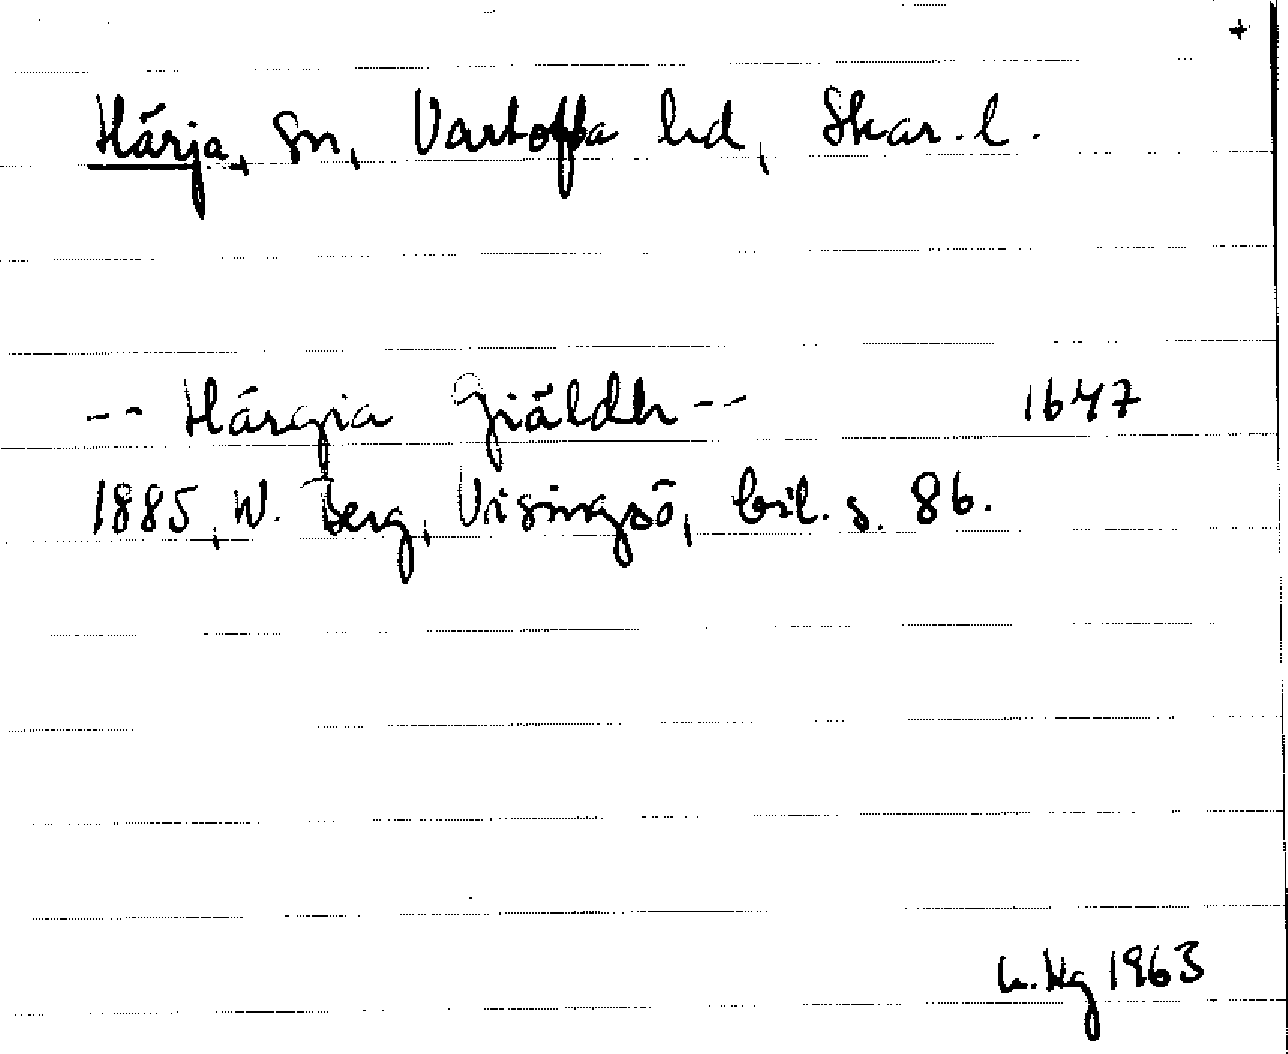 +
Härja, Sn, Vartofta hd, Skar. l.
-- Härgia Giäldh -- 1647
1885, W. Berg, Visingsö, bil. s. 86.
1963